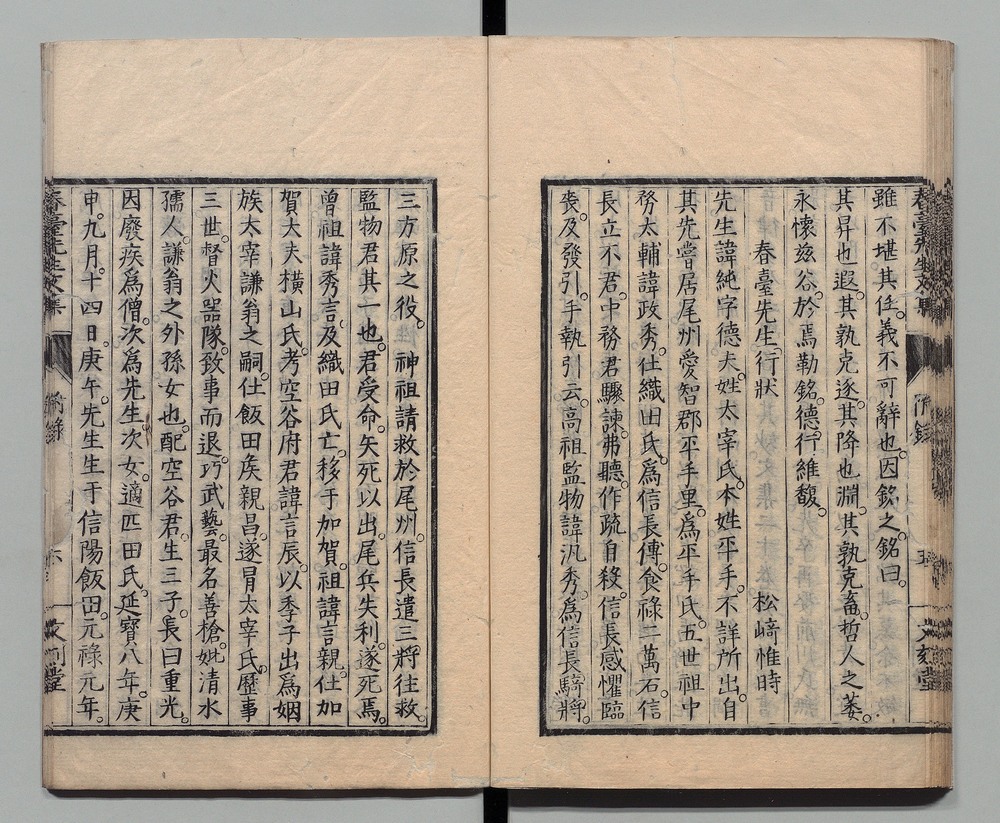 雖不堪其任。義不可辭也。因銘之。銘曰。
其昇也遐。其孰克逐。其降也淵。其孰克畜。哲人之萎。
永懷茲谷。於焉勒銘。德行維馥。
春臺先生行狀 松﨑惟時
先生諱純字德夫。姓太宰氏。本姓平手。不詳所出。自
其先嘗居尾州愛智郡平手里。爲平手氏。五世祖中
務太輔諱政秀。仕織田氏。爲信長傅。食祿三萬石。信
長立不君。中務君驟諫。弗聽。作疏自殺。信長感懼。臨
喪。及發引。手執引云。高祖監物諱汎秀。爲信長騎將。
三方原之役。神祖請救於尾州。信長遣三將往救。
監物君其一也。君受命。矢死以出。尾兵失利。遂死焉。
曾祖諱秀言。及織田氏亡。移于加賀。祖諱言親。仕加
賀大夫橫山氏。考空谷府君諱言辰。以季子出爲姻
族太宰謙翁之嗣。仕飯田侯親昌。遂冒太宰氏。歷事
三世。督火器隊。致事而退。巧武藝。最名善槍。妣淸水
孺人。謙翁之外孫女也。配空谷君。生三子。長曰重光。
因廢疾爲僧。次爲先生。次女。適匹田氏。延寶八年。庚
申。九月。十四日。庚午。先生生于信陽飯田。元祿元年。
春臺先生文集
附錄
六